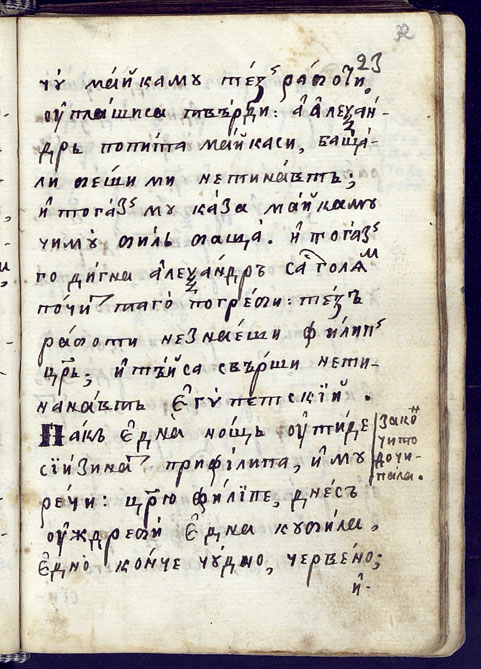 32
23
чꙋ̀ ма́йкамꙋ те́зⸯ рабо́ти,
ᲂу҆пла́шиса твъ́рди: а҆ а҆леѯан-
дръ попи́та ма́йкаси, баща́-
ли беши ми нетина́въ;
и҆ тога́зⸯ мꙋ ка́за ма́йкамꙋ
чимꙋ̀ би́лъ баща̀. и҆ тога́зⸯ
го ди́гна а҆леѯа́ндръ са голя́м
по́чит таго̀ погребѝ: те́зъ
работи незна́еши фили́пⸯ
цр҃ь; и҆ тъ́йса свъ́рши нети-
нана́въ є҆гѵ́петскїй.
Па́къ є҆дна̀ но́щъ ᲂу҆ти́де
сїизина̀т прифи́липа, и҆ мꙋ
ре́чи: цр҃ю фи́лїпе, дне́съ
ᲂу҆ждребѝ є҆дна кꙋби́ла,
є҆дно̀ ко́нче чꙋ́дно, черве́но;
и҆-
Закон
чито
дочи-
тала.